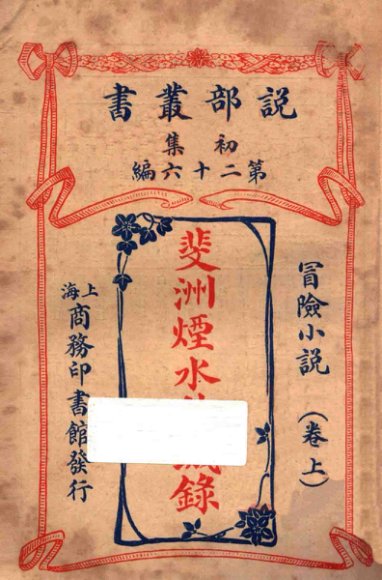 説部叢書
初集
第二十六編
冒險小説（卷上）
斐洲煙水
錄
上海
商務印書館發行